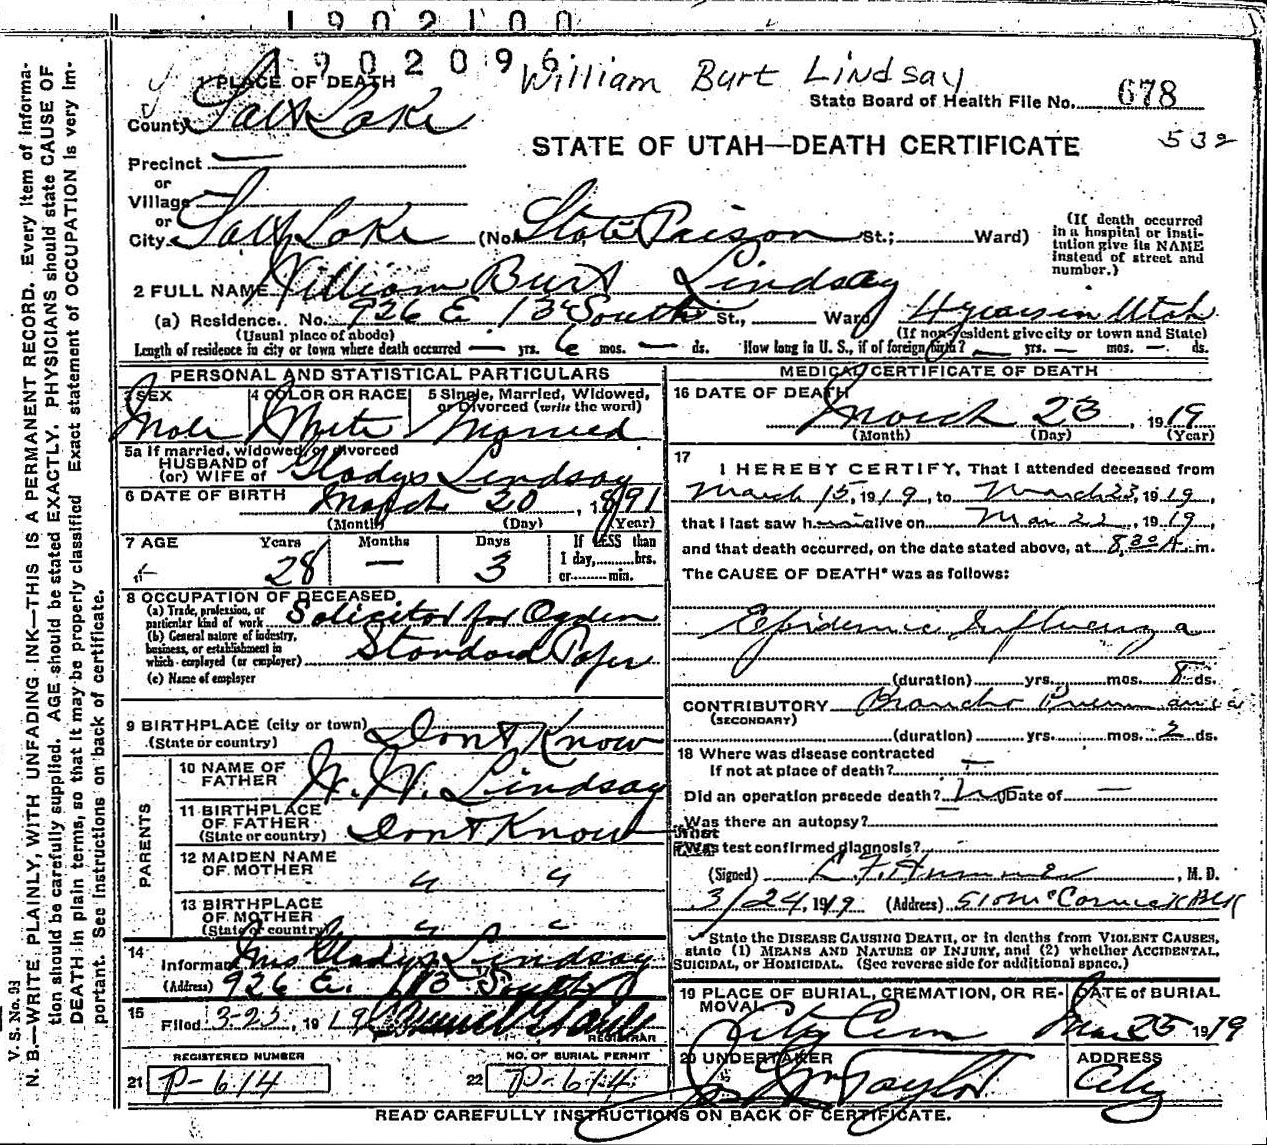 1902100
1902096
William Burt Lindsay
1 PLACE OF DEATH
State Board of Health File No. 678
County Salt Lake
STATE OF UTAH—DEATH CERTIFICATE
532
Precinct —
or
Village
or
City Salt Lake (No. State Prison St.; Ward)
(If death occurred in a hospital or institution give its NAME instead of street and number.)
2 FULL NAME William Burt Lindsay
(a) Residence. No. 926 E. 13 South St., Ward 4 years in Utah
(Usual place of abode) (If non-resident give city or town and State)
Length of residence in city or town where death occurred — yrs. 6 mos. — ds. How long in U. S., if of foreign birth? — yrs. — mos. — ds.
PERSONAL AND STATISTICAL PARTICULARS
3 SEX 4 COLOR OR RACE 5 Single, Married, Widowed, or Divorced (write the word)
Male White Married
5a If married, widowed, or divorced
HUSBAND of
(or) WIFE of Gladys Lindsay
6 DATE OF BIRTH March 20, 1891
(Month) (Day) (Year)
7 AGE Years Months Days If LESS than
1 day, hrs.
28 — 3 or min.
8 OCCUPATION OF DECEASED
(a) Trade, profession, or particular kind of work Solicitor for Ogden
(b) General nature of industry, business, or establishment in which employed (or employer) Standard Paper
(c) Name of employer
9 BIRTHPLACE (city or town) Don't Know
(State or country)
PARENTS
10 NAME OF FATHER W. W. Lindsay
11 BIRTHPLACE OF FATHER Don't Know
(State or country)
12 MAIDEN NAME OF MOTHER " "
13 BIRTHPLACE OF MOTHER " "
(State or country)
14
Informant Mrs Gladys Lindsay
(Address) 926 E. 13 South
15
Filed 3-25, 1919
REGISTRAR
REGISTERED NUMBER NO. OF BURIAL PERMIT
21 P-614 22 P-614
MEDICAL CERTIFICATE OF DEATH
16 DATE OF DEATH
March 23, 1919
(Month) (Day) (Year)
17
I HEREBY CERTIFY, That I attended deceased from
March 15, 1919, to March 23, 1919,
that I last saw him alive on Mar 22, 1919,
and that death occurred, on the date stated above, at 8.30 A. m.
The CAUSE OF DEATH* was as follows:
Epidemic Influenza
(duration) yrs. mos. 8 ds.
CONTRIBUTORY Broncho Pneumonia
(SECONDARY)
(duration) yrs. mos. 2 ds.
18 Where was disease contracted
If not at place of death? —
Did an operation precede death? no Date of —
Was there an autopsy?
What test confirmed diagnosis?
(Signed) M. D.
3/24, 1919 (Address) 510 McCornick Blk
State the DISEASE CAUSING DEATH, or in deaths from VIOLENT CAUSES, state (1) MEANS AND NATURE OF INJURY, and (2) whether ACCIDENTAL, SUICIDAL, or HOMICIDAL. (See reverse side for additional space.)
19 PLACE OF BURIAL, CREMATION, OR REMOVAL DATE of BURIAL
City Cem Mar 25 1919
20 UNDERTAKER ADDRESS
Taylor City
READ CAREFULLY INSTRUCTIONS ON BACK OF CERTIFICATE.
V. S. No. 93
N. B.—WRITE PLAINLY, WITH UNFADING INK—THIS IS A PERMANENT RECORD. Every item of information should be carefully supplied. AGE should be stated EXACTLY. PHYSICIANS should state CAUSE OF DEATH in plain terms, so that it may be properly classified. Exact statement of OCCUPATION is very important. See instructions on back of certificate.